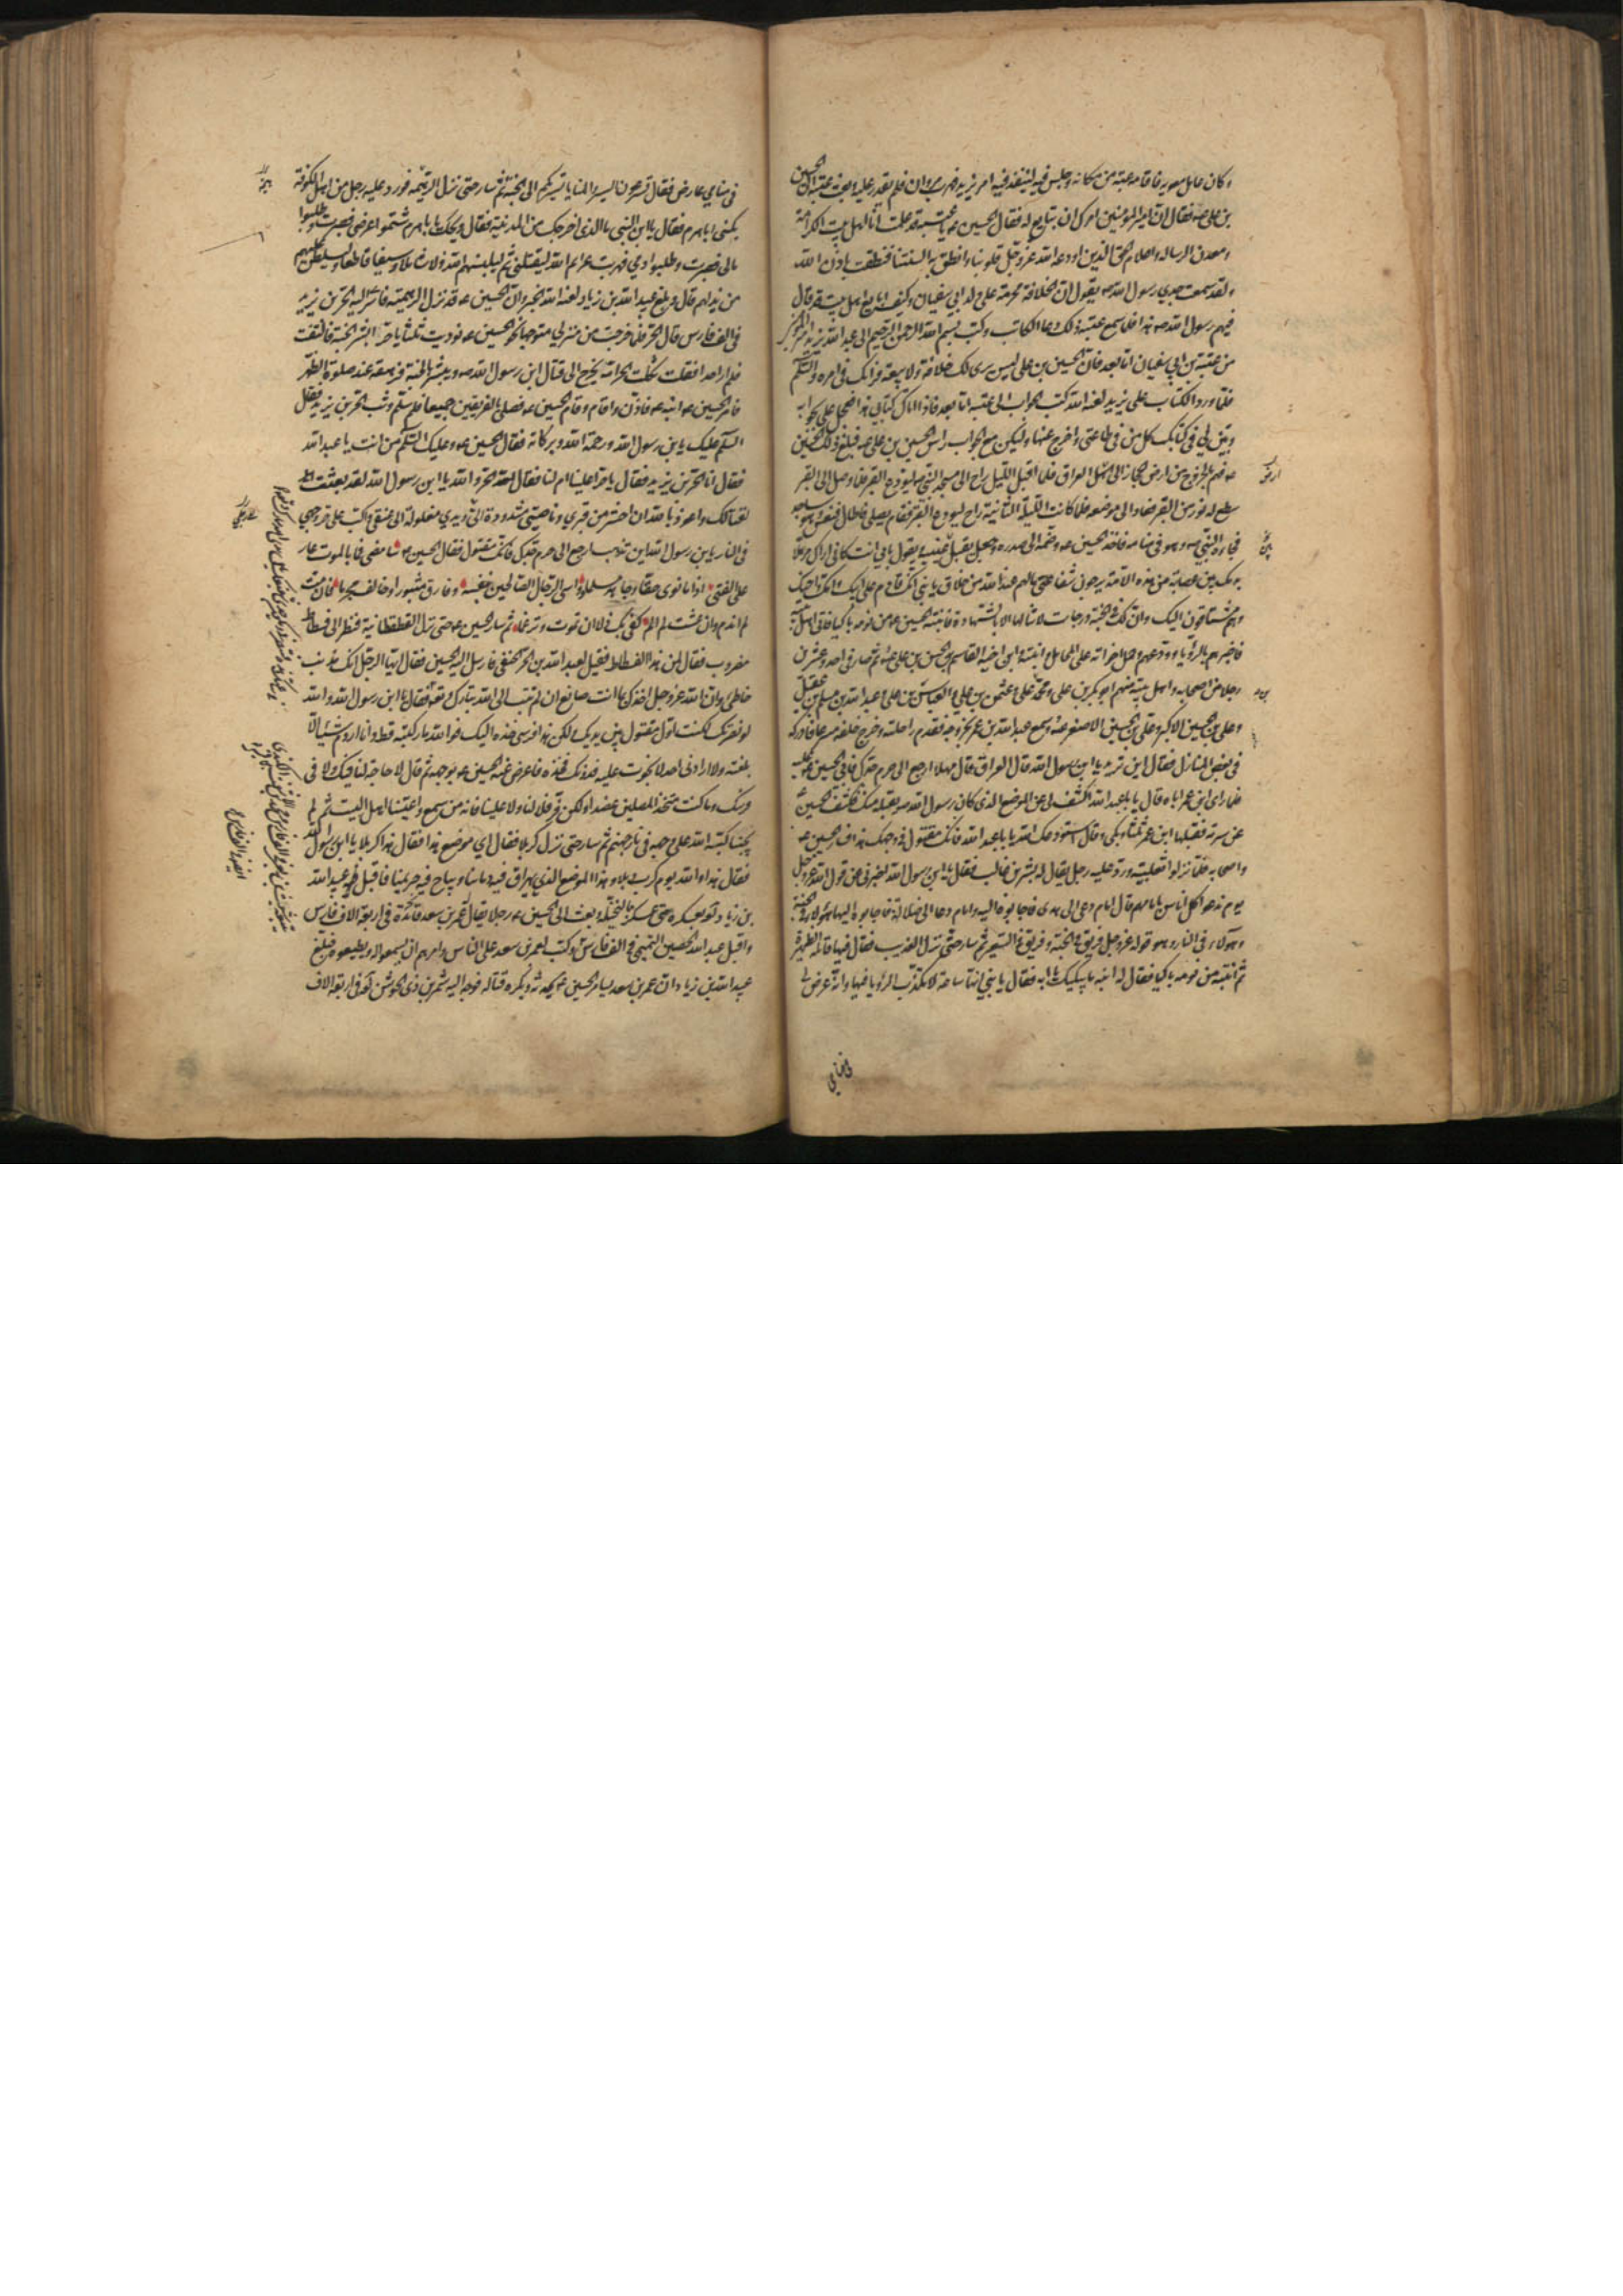 وكان عامل معويه فاقامه عتبة من مكانه وجلس فيه لينفذ فيه امر يزيد فهرب مروان فلم يقدر عليه وبعث عتبة الى الحسين
بن على عه فقال ان امير المؤمنين امرك ان تبايع له فقال الحسين عه يا عتبة قد علمت انا اهل بيت الكرامة
ومعدن الرسالة واعلام الحق الذين اودعه الله عز وجل قلوبنا وانطق به السنتنا فنطقت باذن الله
ولقد سمعت جدي رسول الله صه يقول ان الخلافة محرمة على ولد ابي سفيان وكيف ابايع اهل بيت قد قال
فيهم رسول الله صه هذا فلما سمع عتبة ذلك دعا الكاتب وكتب بسم الله الرحمن الرحيم الى عبد الله يزيد امير المؤمنين
من عتبة بن ابي سفيان اما بعد فان الحسين بن على ليس يرى لك خلافة ولا بيعة فرايك في امره والسلم
فلما ورد الكتاب على يزيد لعنه الله كتب الجواب الى عتبة اما بعد فاذا اتاك كتابي هذا فعجل على بجوابه
وبين لي في كتابك كل من في طاعتي او خرج عنها وليكن مع الجواب راس الحسين بن على عه فبلغ ذلك الحسين
عه فهم بالخروج من ارض الحجاز الى ارض العراق فلما اقبل الليل راح الى مسجد النبي صه ليودع القبر فلما وصل الى القبر
سطع له نور من القبر فعاد الى موضعه فلما كانت الليلة الثانية راح ليودع القبر فقام يصلى فاطال فنعس وهو ساجد
فجاءه النبي صه وهو في منامه فاخذ الحسين عه وضمه الى صدره وجعل يقبل عينيه ويقول بابي انت كاني اراك مرملا
بدمك بين عصابة من هذه الامة يرجون شفاعتي ما لهم عند الله من خلاق يا بني انك قادم على ابيك وامك واخيك
وهم مشتاقون اليك وان لك في الجنة درجات لا تنالها الا بالشهادة فانتبه الحسين عه من نومه باكيا فاتى اهل بيته
فاخبرهم بالرؤيا وودعهم وحمل اخواته على المحامل وابنته وابن اخيه القاسم بن الحسن بن على عه ثم سار في احد وعشرين
رجلا من اصحابه واهل بيته منهم ابو بكر بن على ومحمد بن على وعثمن بن على والعباس بن على وعبد الله بن مسلم بن عقيل
وعلى بن الحسين الاكبر وعلى بن الحسين الاصغر عه وسمع عبد الله بن عمر بخروجه فقدم راحلته وخرج خلفه مسرعا فادركه
في بعض المنازل فقال اين تريد يا ابن رسول الله قال العراق قال مهلا ارجع الى حرم جدك فابى الحسين عه عليه
فلما راى ابن عمر اباه قال يا ابا عبد الله اكشف لى عن الموضع الذي كان رسول الله صه يقبله منك فكشف الحسين عه
عن سرته فقبلها ابن عمر ثلثا وبكى وقال استودعك الله يا ابا عبد الله فانك مقتول في وجهك هذا فسار الحسين عه
واصحابه فلما نزلوا ثعلبية ورد عليه رجل يقال له بشر بن غالب فقال يا ابن رسول الله اخبرني عن قول الله عز وجل
يوم ندعو كل اناس بامامهم قال امام دعى الى هدى فاجابوه اليه وامام دعا الى ضلالة فاجابوه اليها هؤلاء في الجنة
وهؤلاء في النار وهو قوله عز وجل فريق في الجنة وفريق في السعير ثم سار حتى نزل العذيب فقال فيها قائلة الظهيرة
ثم انتبه من نومه باكيا فقال له ابنه ما يبكيك يا ابه فقال يا بني انها ساعة لا تكذب الرؤيا فيها وانه عرض لى
في منامي
في منامي عارض فقال تسرعون السير والمنايا تسير بكم الى الجنة ثم سار حتى نزل الرهيمة فورد عليه رجل من اهل الكوفة
يكنى ابا هرم فقال يا ابن النبي ما الذي اخرجك من المدينة فقال ويحك يا ابا هرم شتموا عرضي فصبرت وطلبوا
مالى فصبرت وطلبوا دمي فهربت وايم الله ليقتلني ثم ليلبسنهم الله ذلا شاملا وسيفا قاطعا وليسلطن عليهم
من يذلهم قال وبلغ عبيد الله بن زياد لعنه الله الخبر وان الحسين عه قد نزل الرهيمة فاسرى اليه الحر بن يزيد
في الف فارس قال الحر فلما خرجت من منزلي متوجها نحو الحسين عه نوديت ثلثا يا حر ابشر بالجنة فالتفت
فلم ار احدا فقلت ثكلت الحر امه يخرج الى قتال ابن رسول الله صه ويبشر بالجنة فرهقه عند صلوة الظهر
فامر الحسين عه ابنه فاذن واقام وقام الحسين عه فصلى بالفريقين جميعا فلما سلم وثب الحر بن يزيد فقال
السلم عليك يا بن رسول الله ورحمة الله وبركاته فقال الحسين عه وعليك السلم من انت يا عبد الله
فقال انا الحر بن يزيد فقال يا حر اعلينا ام لنا فقال الحر والله يا ابن رسول الله لقد بعثت
لقتالك واعوذ بالله ان احشر من قبري وناصيتي مشدودة الى ويدي مغلولة الى عنقي واكب على حر وجهي
في النار يا بن رسول الله اين تذهب ارجع الى حرم جدك فانك مقتول فقال الحسين عه سامضي فما بالموت عار
على الفتى اذا ما نوى حقا وجاهد مسلما وواسى الرجال الصالحين بنفسه وفارق مثبورا وخالف مجرما فان مت
لم اندم وان عشت لم الم كفى بك ذلا ان تموت وترغما ثم سار الحسين عه حتى نزل القطقطانية فنظر الى فسطاط
مضروب فقال لمن هذا الفسطاط فقيل لعبد الله بن الحر الحنفي فارسل اليه الحسين فقال ايها الرجل انك مذنب
خاطئ وان الله عز وجل اخذك بما انت صانع ان لم تتب الى الله تبارك وتعه فقال يا ابن رسول الله والله
لو نصرتك لكنت اول مقتول بين يديك ولكن هذا فرسي خذه اليك فوالله ما ركبته قط وانا اروم شيئا الا
بلغته ولا ارادني احد الا نجوت عليه فدونك فخذه فاعرض عنه الحسين عه بوجهه ثم قال لا حاجة لنا فيك ولا في
فرسك وما كنت متخذ المضلين عضدا ولكن فر فلا لنا ولا علينا فانه من سمع واعيتنا اهل البيت ثم لم
يجبنا كبه الله على وجهه في نار جهنم ثم سار حتى نزل كربلا فقال اي موضع هذا فقال هذا كربلا يا ابن رسول الله
فقال هذا والله يوم كرب وبلاء وهذا الموضع الذي يهراق فيه دماءنا ويباح فيه حريمنا فاقبل عبيد الله
بن زياد بعسكره حتى عسكر بالنخيلة وبعث الى الحسين عه رجلا يقال له عمر بن سعد قائده في اربعة الاف فارس
واقبل عبد الله بن الحصين التميمي في الف فارس وكتب لعمر بن سعد على الناس وامرهم ان يسمعوا له ويطيعوه فبلغ
عبيد الله بن زياد ان عمر بن سعد يسامر الحسين عه ويحدثه ويكره قتاله فوجه اليه شمر بن ذي الجوشن في اربعة الاف